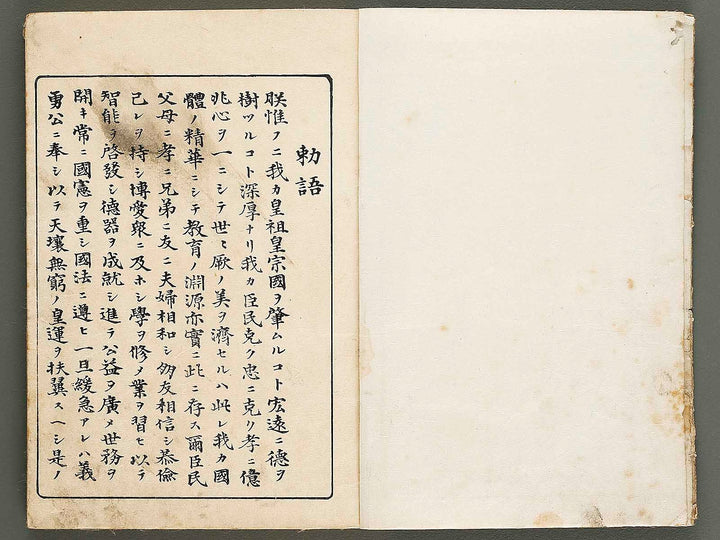 勅語
朕惟フニ我カ皇祖皇宗國ヲ肇ムルコト宏遠ニ德ヲ
樹ツルコト深厚ナリ我カ臣民克ク忠ニ克ク孝ニ億
兆心ヲ一ニシテ世々厥ノ美ヲ濟セルハ此レ我カ國
體ノ精華ニシテ教育ノ淵源亦實ニ此ニ存ス爾臣民
父母ニ孝ニ兄弟ニ友ニ夫婦相和シ朋友相信シ恭儉
己レヲ持シ博愛衆ニ及ホシ學ヲ修メ業ヲ習ヒ以テ
智能ヲ啓發シ德器ヲ成就シ進テ公益ヲ廣メ世務ヲ
開キ常ニ國憲ヲ重シ國法ニ遵ヒ一旦緩急アレハ義
勇公ニ奉シ以テ天壤無窮ノ皇運ヲ扶翼スヘシ是ノ